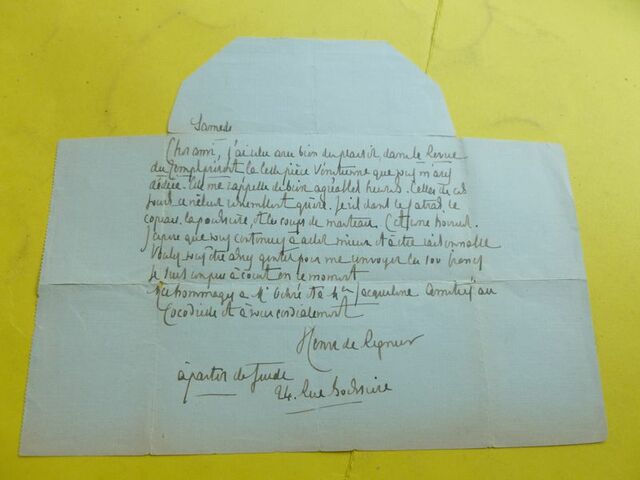 Samedi
Cher ami, j'ai relu avec bien du plaisir, dans la Revue
du Temps présent la belle pièce Vénitienne que vous m'avez
dédiée. Elle me rappelle de bien agréables heures. Celles de ces
jours ci ne leur ressemblent guère. Je vis dans le fatras, le
copeau, la poussière, et les coups de marteau. C'est une horreur.
J'espère que vous continuez à aller mieux et à être raisonnable
Voulez vous être assez gentil pour me envoyer les 100 francs
je suis un peu à court en ce moment
Mes hommages à Me et à Mlle Jacqueline amitiés au
Cocodrille et à vous cordialement
Henri de Régnier
à partir de Jeudi
24. Rue Boissière